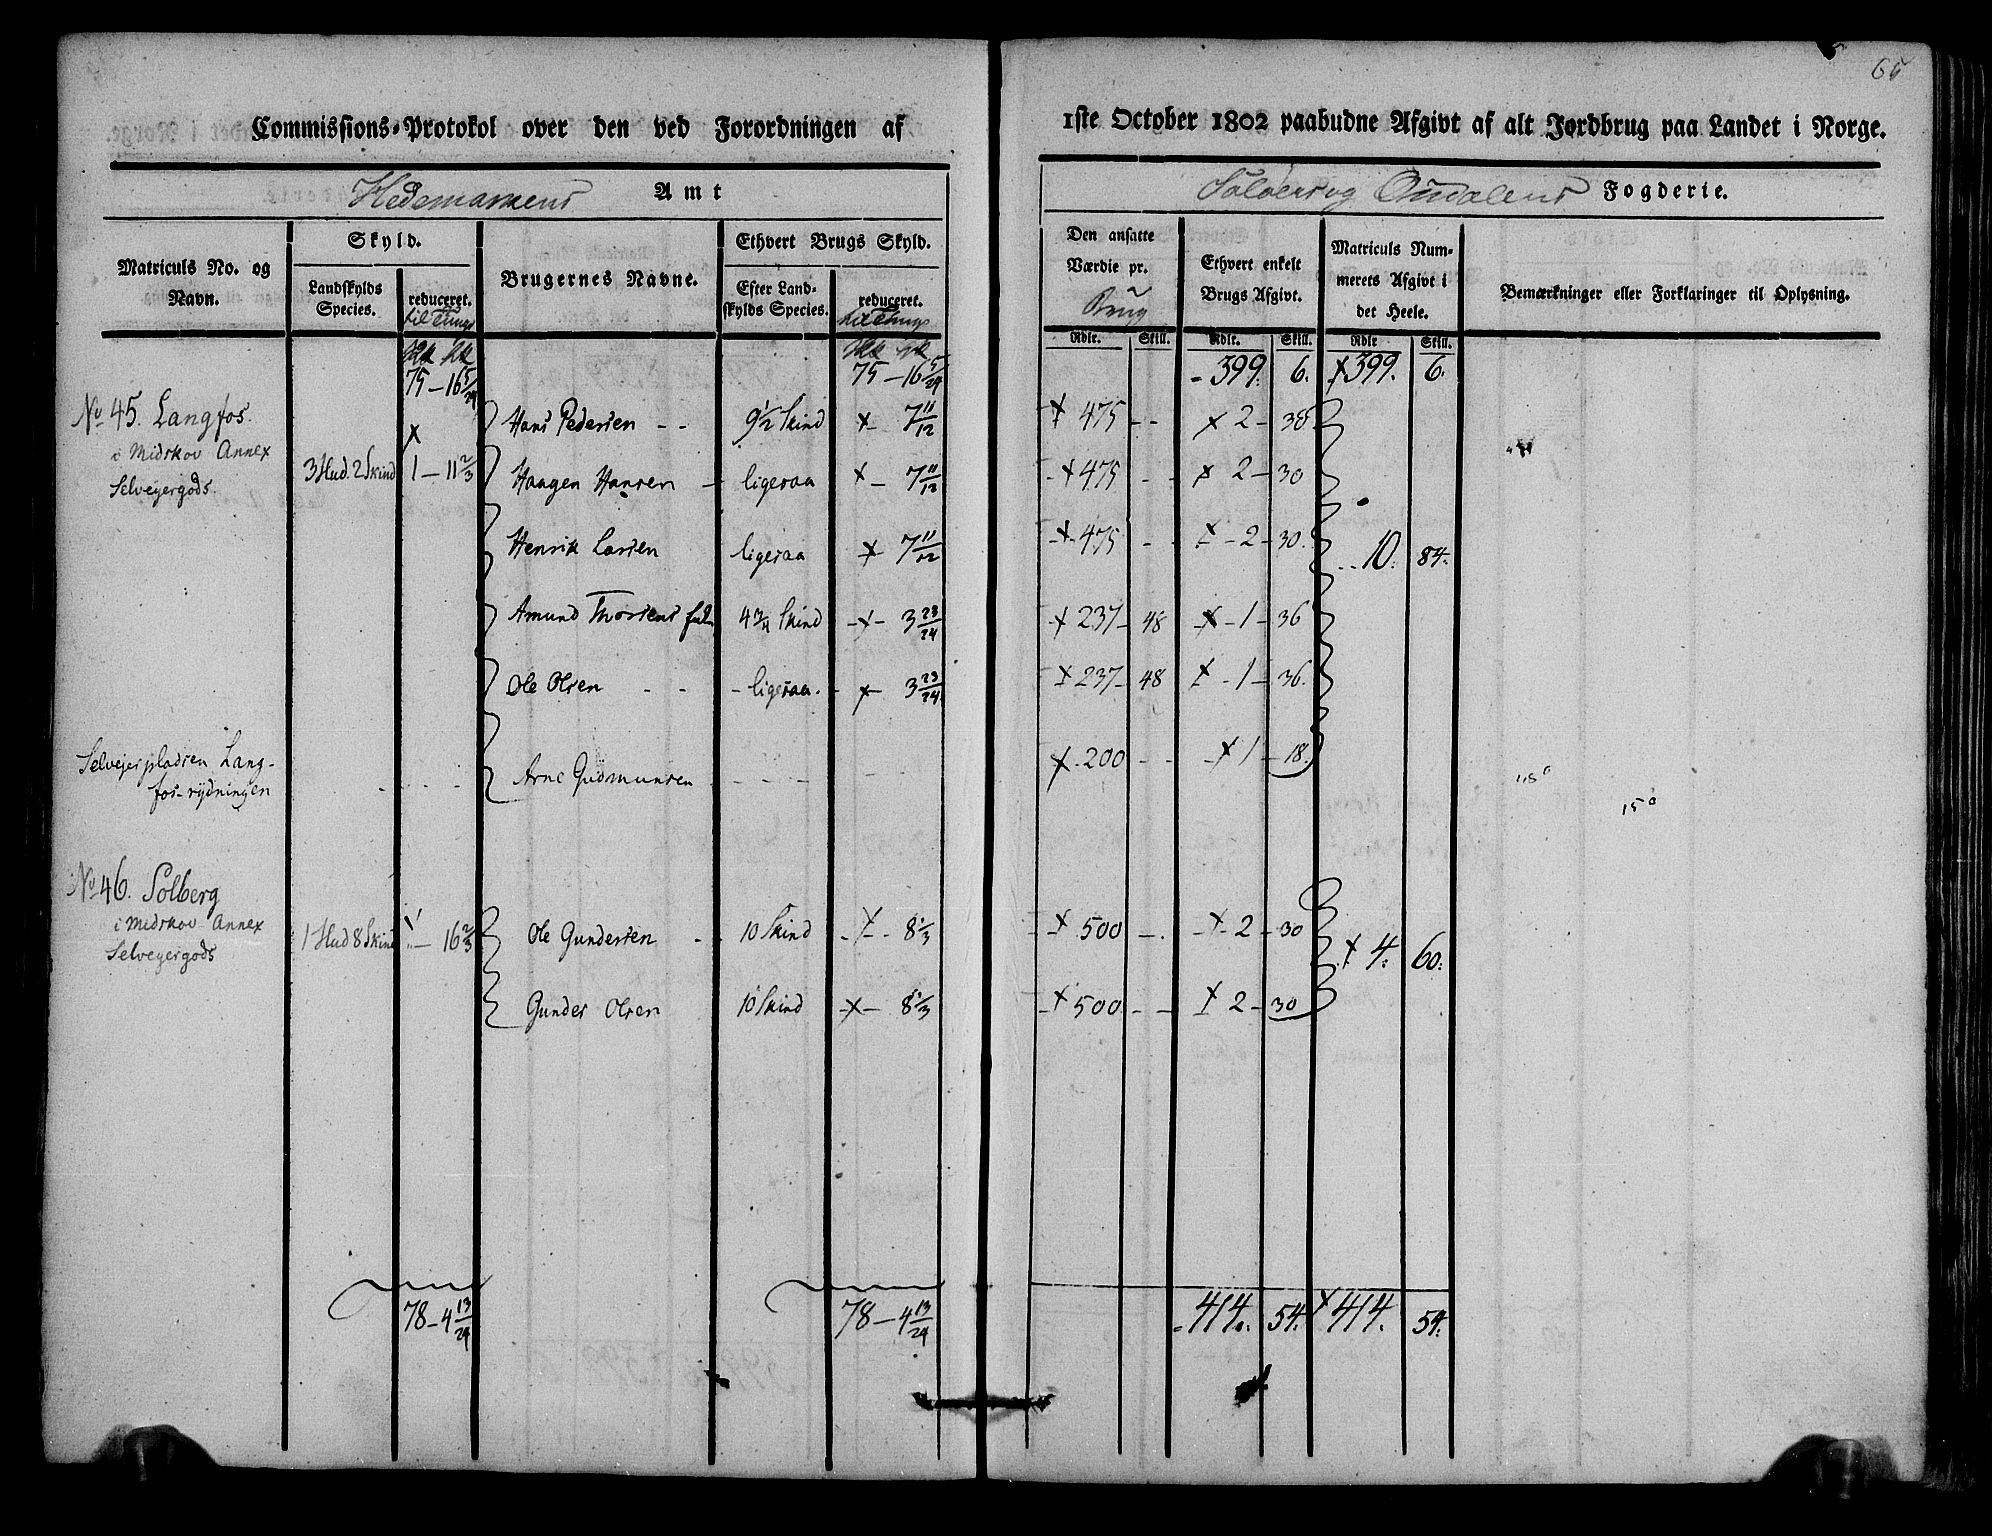 65
Commissions-Protokol over den ved Forordningen af 1ste October 1802 paabudne Afgivt af alt Jordbrug paa Landet i Norge.
Hedemarkens Amt
Soløer og Oudalens Fogderie.
Matriculs No. og Navn.
Skyld.
Landskylds Species.
reduceret.
til Tunge
Brugernes Navne.
Ethvert Brugs Skyld.
Efter Landskylds Species.
reduceret.
til Tunge
Den ansatte Værdie pr. Brug
Ethvert enkelt Brugs Afgivt.
Matriculs Nummerets Afgivt i det Heele.
Bemærkninger eller Forklaringer til Oplysning.
Rdlr. Skill. Rdlr. Skill. Rdlr Skill.
75 - 16 5/24 75 - 16 5/24 399. 6. x 399. 6.
No 45. Langfos.
i Midskov Annex
Selveyergods.
3 Hud. 2 Skind x 1 - 11 2/3
Hans Pedersen - - 9 1/2 Skind x - 7 11/12 x 475 - - x 2 - 30
Haagen Hansen - ligesaa x - 7 11/12 x 475 - - x 2 - 30
Henrik Larsen ligesaa x - 7 11/12 x 475 - - x - 2 - 30. 10. 84.
Amund Thorsens 4 3/4 Skind x - 3 23/24 x 237 - 48 x - 1 - 36
Ole Olsen - - - ligesaa. - x - 3 23/24. x 237 - 48 x - 1 - 36.
Selvejerpladsen Langfos-rydningen
Arne Gudmunsen - - - - x 200 - - x 1 - 18.
150
No 46. Solberg
i Midskov Annex
Selveyergods
1 Hud 8 Skind x - 16 2/3
Ole Gundersen - - 10 Skind x - 8 1/3 x 500 - . x - 2 - 30 x 4. 60.
Gunder Olsen 10 Skind x - 8 1/3 x 500 - - x 2 - 30
78 - 4 13/24 78 - 4 13/24 414. 54. x 414. 54.